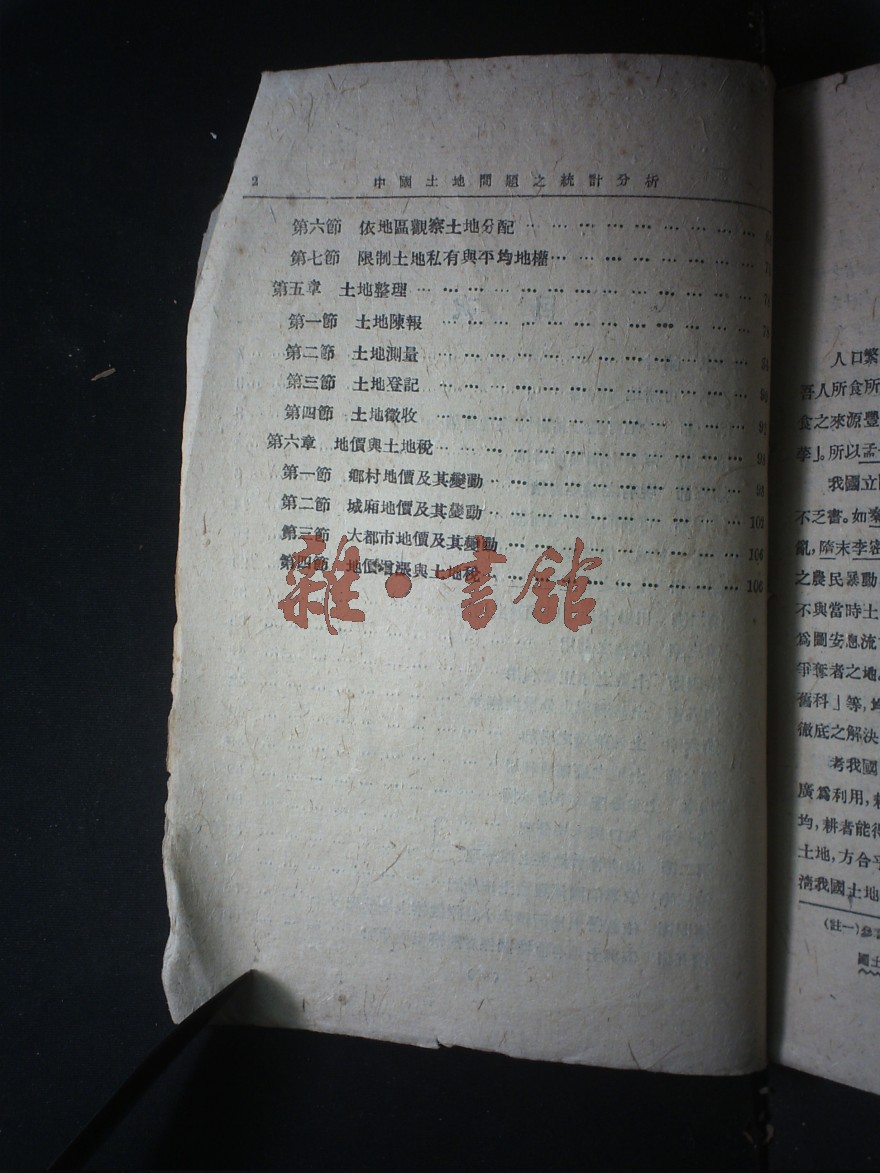 2 中國土地問題之統計分析
第六節 依地區觀察土地分配
第七節 限制土地私有與平均地權
第五章 土地整理
第一節 土地陳報
第二節 土地測量
第三節 土地登記
第四節 土地徵收
第六章 地價與土地稅
第一節 鄉村地價及其變動
第二節 城廂地價及其變動
第三節 大都市地價及其變動 104
第四節 地價增漲與土地稅 106
雜·書館
人口繁
吾人所食所
食之來源豐
莩」。所以孟
我國立
不乏書。如秦
亂,隋末李密
之農民暴動
不與當時土
為圖安息流
爭奪者之地
舊科」等,均
徹底之解決
考我國
廣為利用,耕
均,耕者能得
土地,方合乎
清我國土地
(註一)參
國土